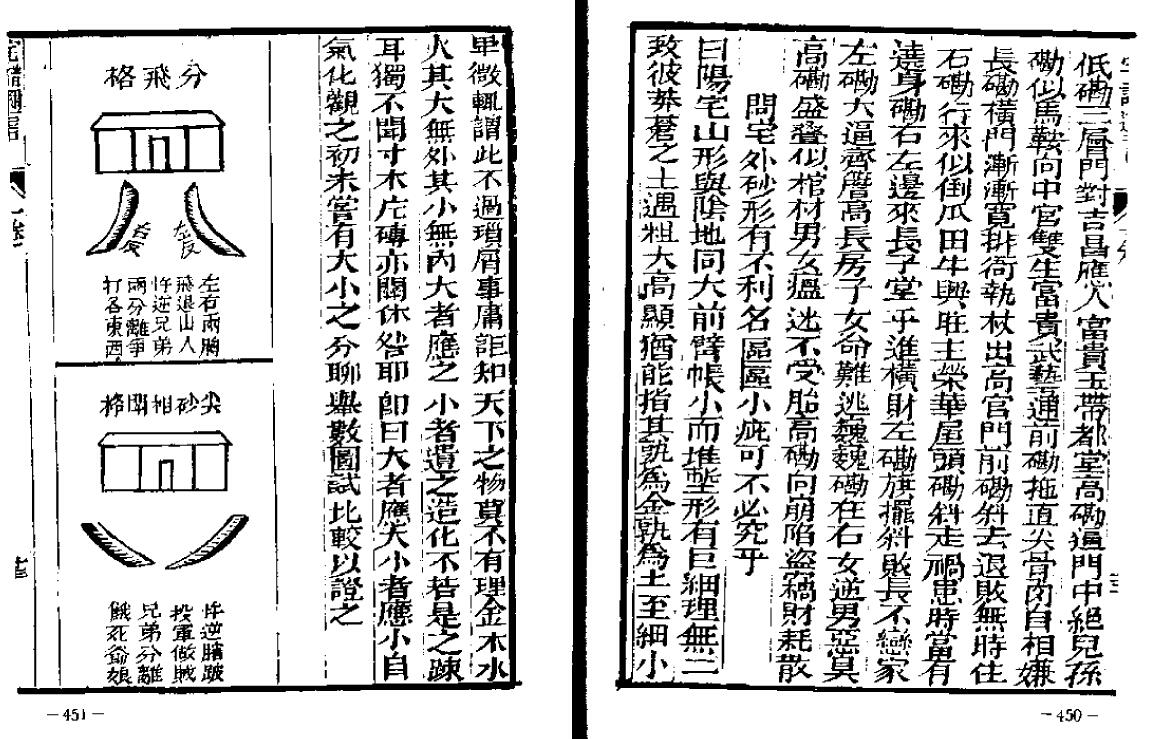 低磡三層門對吉昌應人富貴玉帶都堂高磡逼門中絕兒孫
磡似馬鞍向中宮雙生富貴武藝通前磡拖直尖骨肉自相嫌
長磡橫門漸漸寬排衙執杖出高官門前磡斜去退敗無時住
右磡行來似倒瓜田牛興旺主榮華屋頭磡斜走禍患時當有
遶身磡右左邊來長子堂乎進橫財左磡旗擺斜敗長不戀家
左磡大逼齊層高長房子女命難逃巍巍磡在右女逆男惡莫
高磡盛疊似棺材男女瘟迷不受胎高磡向崩陷盜竊財耗散
問宅外砂形有不利名區區小疵可不必究乎
曰陽宅山形與陰地同大前臂帳小而堆墊形有巨細理無二
致彼莽蒼之土遇粗大高顯猶能指其孰為金孰為土至細小
—450—
卑微輒謂此不過瑣屑事庸詎知天下之物莫不有理金木水
火其大無外其小無內大者應之小者遺之造化不若是之疎
耳獨不聞寸木片磚亦關休咎耶卽曰大者應大小者應小自
氣化觀之初未嘗有大小之分聊舉數圖試比較以證之
分飛格
左反
右反
左右兩膊
飛退山人
忤逆兄弟
兩分離爭
打各東西
尖砂相鬪格
忤逆膊跛
投軍做賊
兄弟分離
餓死爺娘
—451—